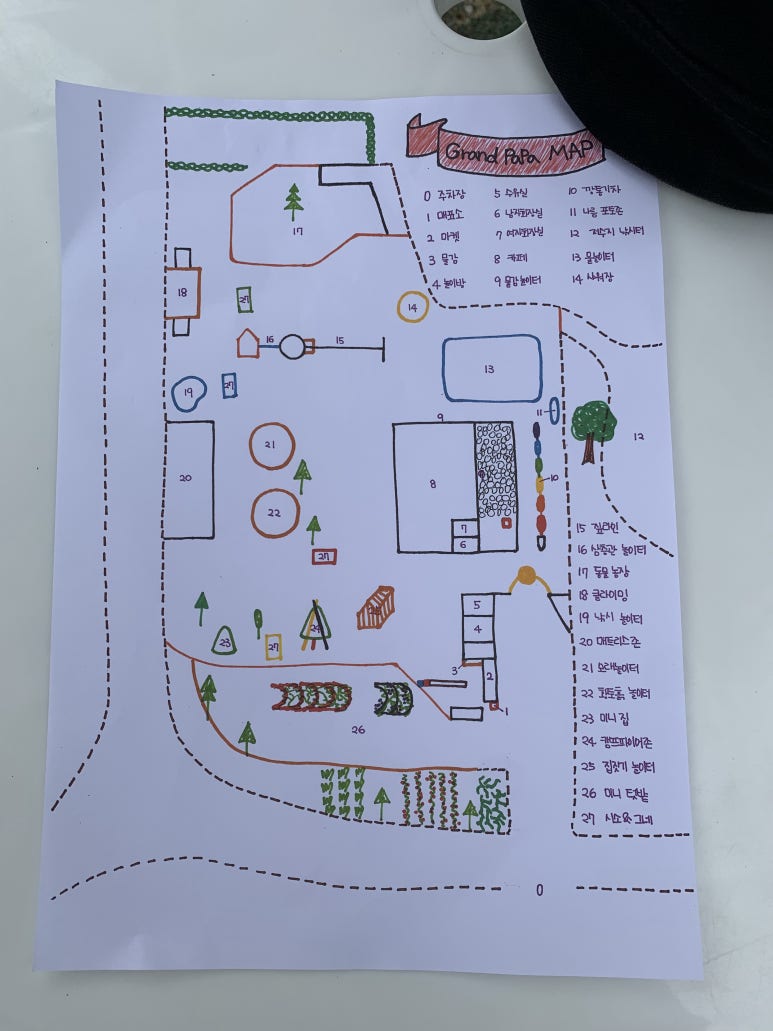 Grand PaPa MAP
0 주차장
1 매표소
2 마켓
3 물감
4 놀이방
5 수유실
6 남자화장실
7 여자화장실
8 카페
9 물감놀이터
10 깡통기차
11 나름 포토존
12 저수지 낚시터
13 물놀이터
14 샤워장
17
18
27
14
16
15
13
19
27
11
12
9
21
20
8
10
22
7
6
27
5
24
4
23
27
3
2
1
26
0
15 짚라인
16 삼층관 놀이터
17 동물농장
18 클라이밍
19 낚시 놀이터
20 매트리스존
21 모래놀이터
22 황토흙 놀이터
23 미니 집
24 캠프파이어존
25 집짓기 놀이터
26 미니 텃밭
27 시소&그네